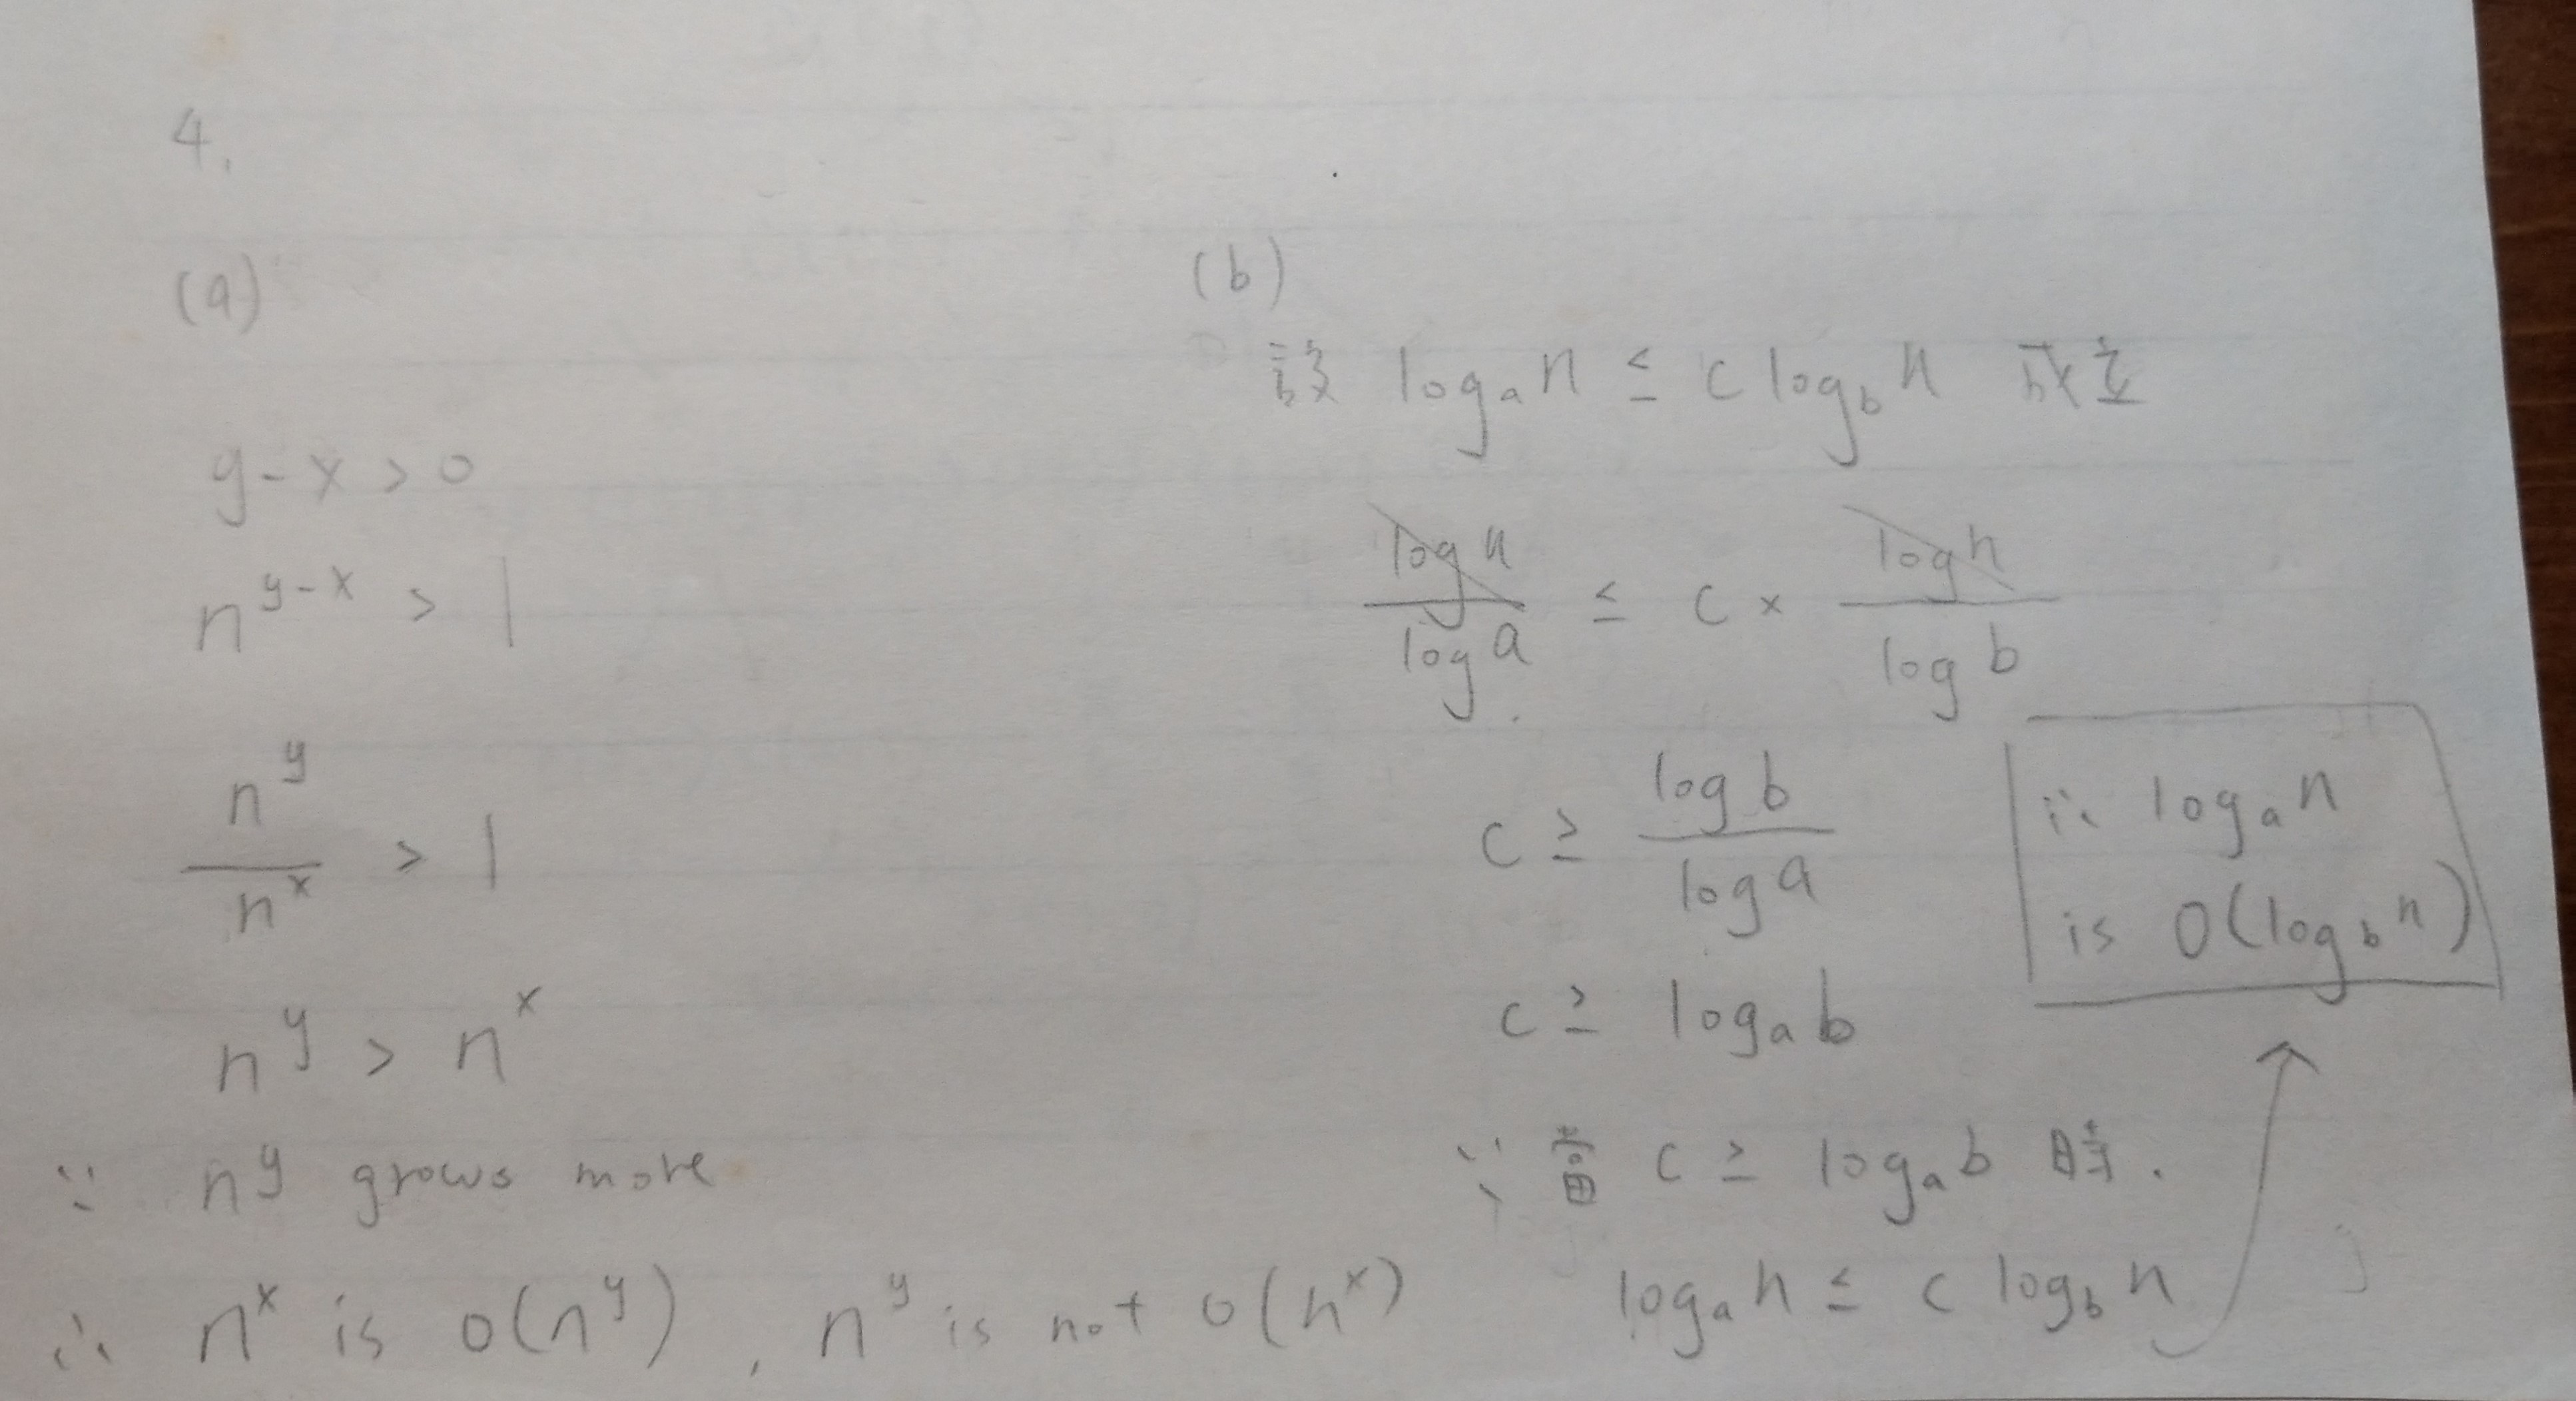 4.
(a)
y-x > 0
n^{y-x} > 1
\frac{n^y}{n^x} > 1
n^y > n^x
∵ n^y grows more
∴ n^x is O(n^y), n^y is not O(n^x)
(b)
設 log_a n ≤ c log_b n 成立
\frac{log n}{log a} ≤ c × \frac{log n}{log b}
c ≥ \frac{log b}{log a}
c ≥ log_a b
∵ 當 c ≥ log_a b 時.
log_a n ≤ c log_b n
∴ log_a n
is O(log_b n)